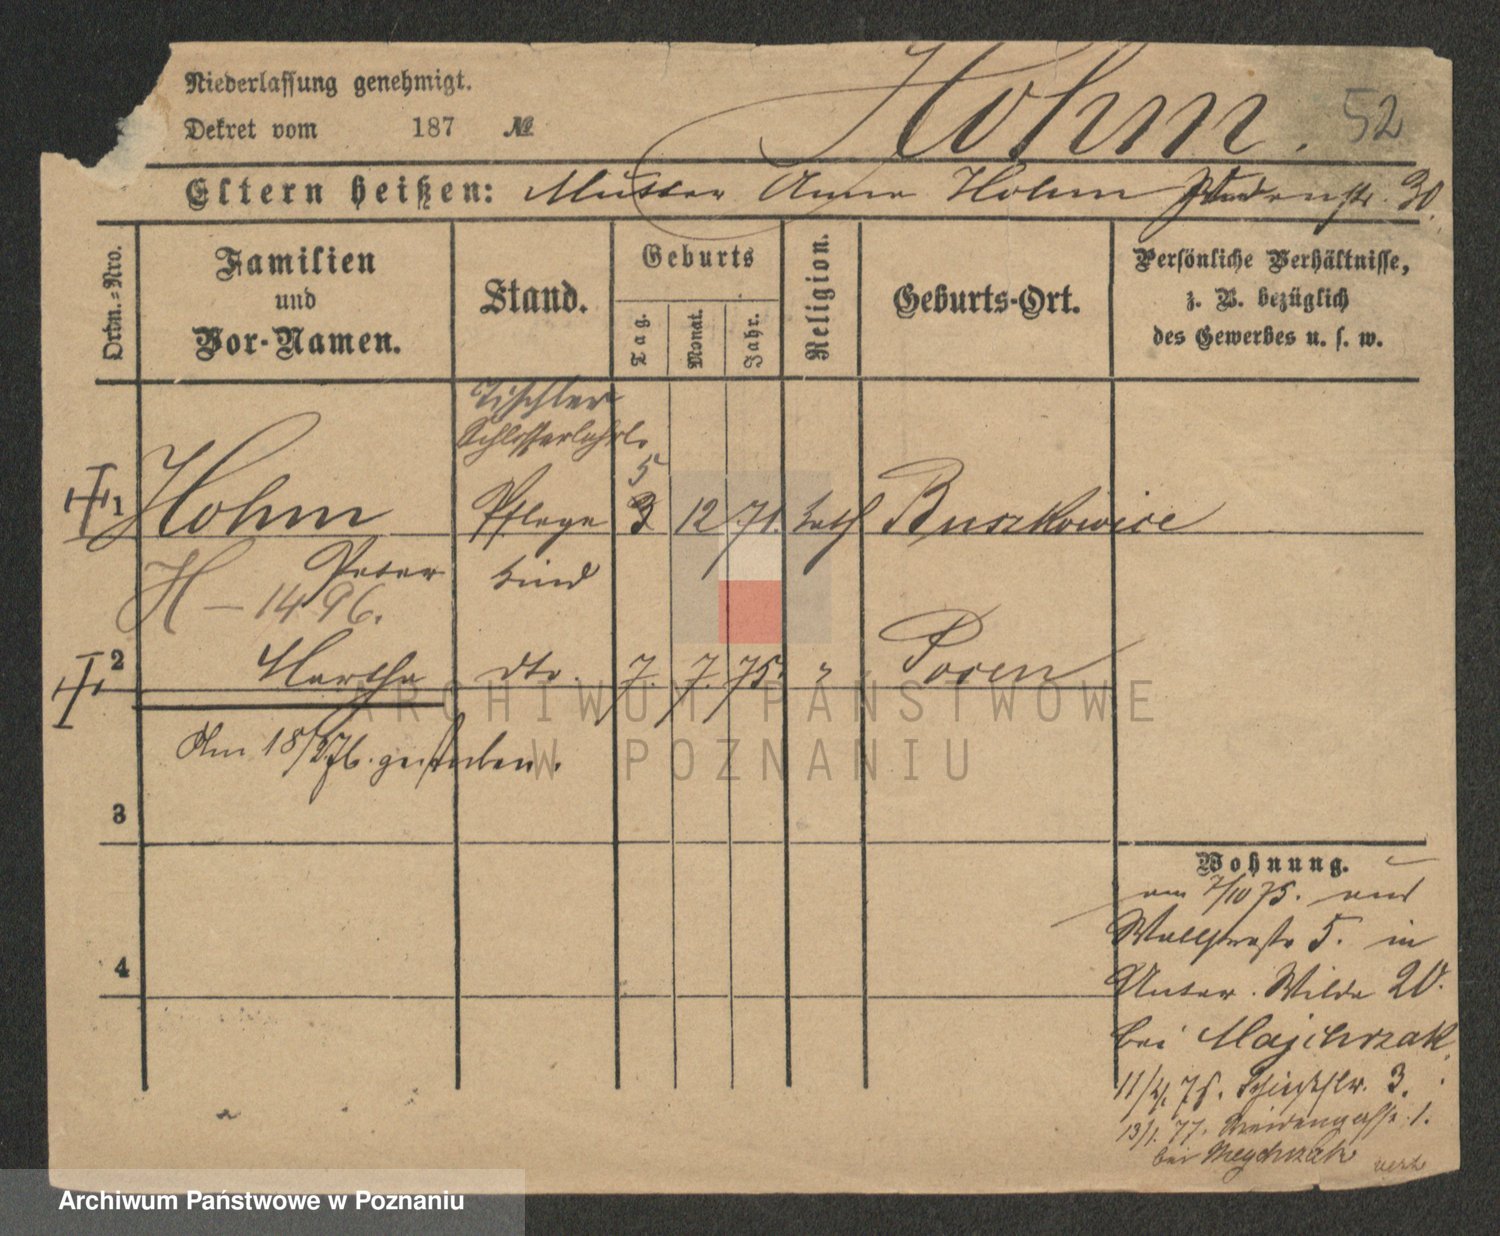 Niederlassung genehmigt.
Dekret vom 187 №
Hohm. 52
Eltern heißen: Mutter Anna Hohm 30.
Ordn.-Nro.
Familien
und
Vor-Namen.
Stand.
Geburts
Tag.
Monat.
Jahr.
Religion.
Geburts-Ort.
Persönliche Verhältnisse,
z. B. bezüglich
des Gewerbes u. s. w.
Tischler
Schlosserlehrl.
5
1 Hohm Pflege 3 12 71. kath Buszkowice
Peter kind
H – 1496.
2 Martha dto. 7. 7. 75. " Posen
Am 18/ 76. gestorben.
3
4
Wohnung.
am 7/10 75. aus
Wallstraße 5. in
Unter. Wilda 20.
bei Majchrzak.
11/4. 76. 3.
13/1. 77. Weidengasse 1.
bei Meychrzak verz
ARCHIWUM PAŃSTWOWE
W POZNANIU
Archiwum Państwowe w Poznaniu